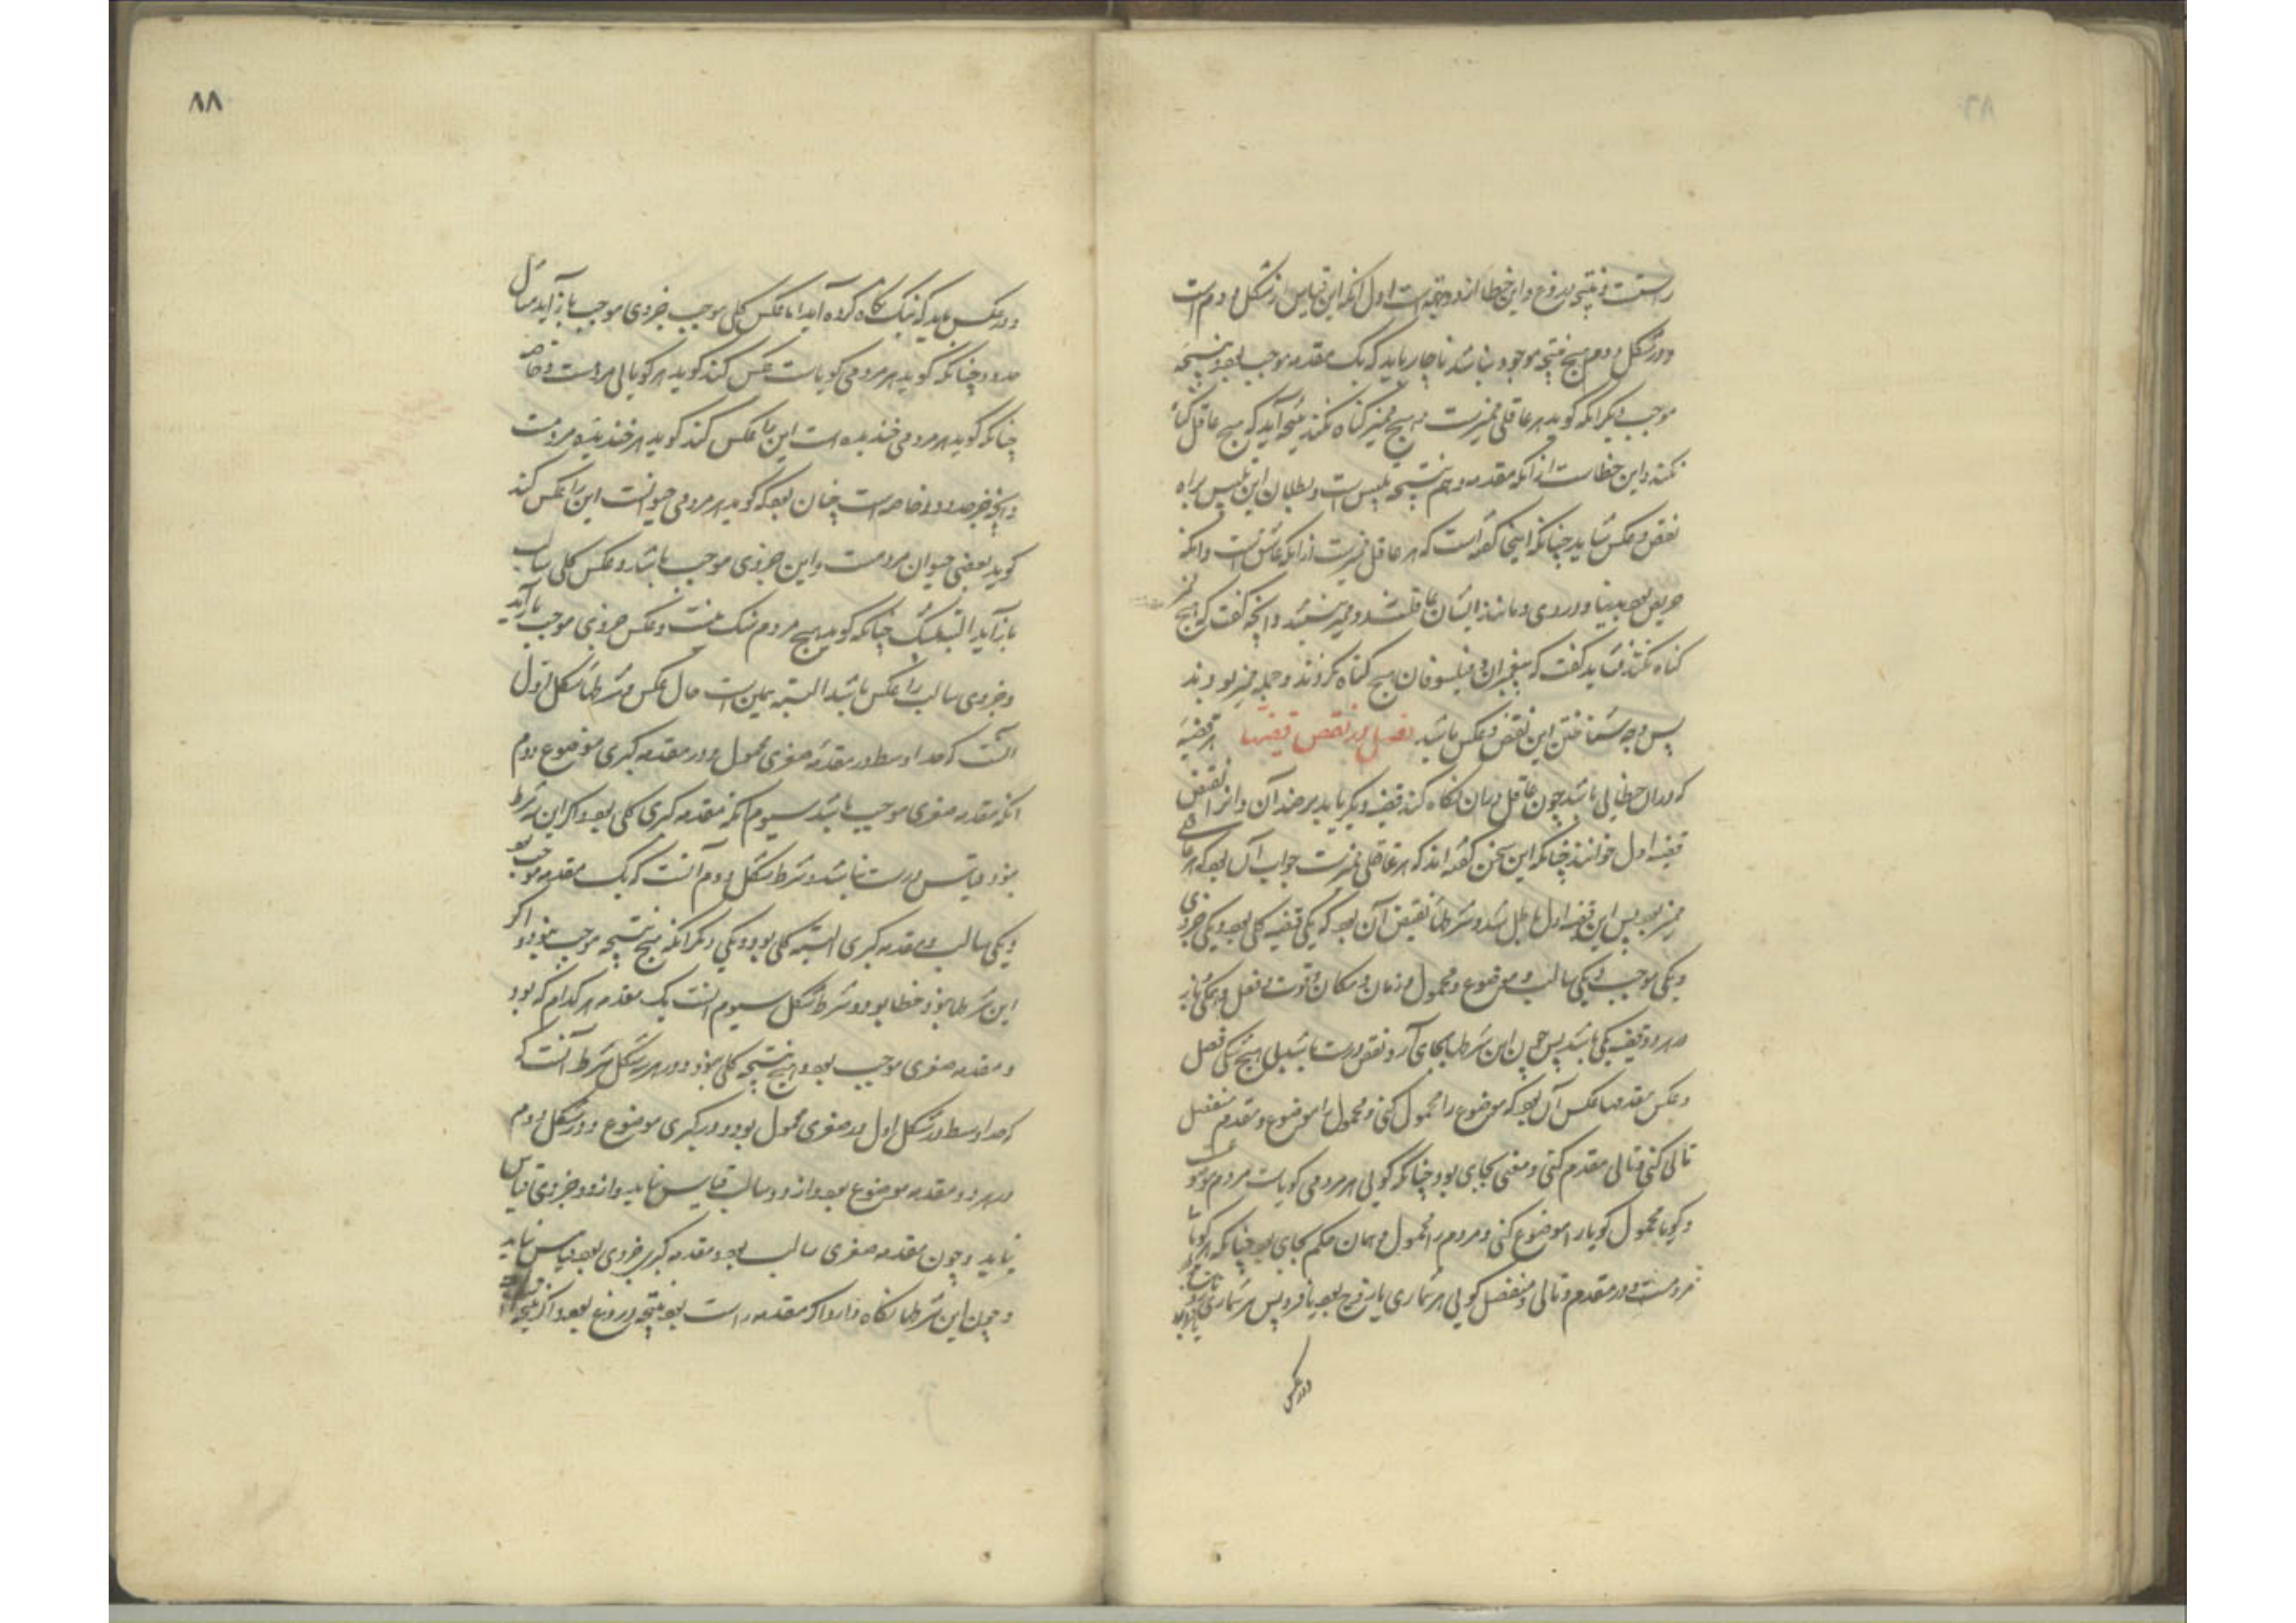 راست و نتیجه دروغ و این خطا از دو وجه است اول آنکه این قیاس از شکل دوم است
و در شکل دوم هیچ نتیجه موجود نباشد ناچار باید که یک مقدمه موجب بود و نتیجه
موجب دیگر آنکه گوید هر عاقلی ممیزست و هیچ ممیز گناه نکند نتیجه آید که هیچ عاقل گناه
نکند و این خطاست از آنکه مقدمه و هم نتیجه تلبیس است و بطلان این تلبیس براه
نقض و عکس شاید چنانکه اینجا گفته است که هر عاقل ممیزست از آنکه عاشق است و آنکه
حریص بود بدنیا و دزدی و مانند ایشان عاقلند و ممیز نیستند و آنچه گفت که هیچ ممیز
گناه نکند نشاید گفت که پیغمبران و فیلسوفان هیچ گناه نکردند و جمله ممیز بودند
پس وجه شناختن این نقض و عکس باشد فصل در نقض قضیتها هر قضیه
که در آن خطایی باشد چون عاقل در آن نگاه کند قضیه دیگر باید بر ضد آن و آنرا نقیض
قضیه اول خوانند چنانکه این سخن گفته اند که هر عاقلی ممیزست جواب آن بود که نه هر عاقلی
ممیز بود پس این قضیه اول باطل شد و شرطهای نقیض آن بود که یکی قضیه کلی بود و یکی جزوی
و یکی موجب و یکی سالب و موضوع و محمول و زمان و مکان و قوت و فعل و همگی باز
در هر دو قضیه یکی باشد پس چون این شرطها بجای آرد نقض درست باشد بی هیچ شکی فصل
و عکس مقدمها عکس آن بود که موضوع را محمول کنی و محمول را موضوع و مقدم متصل
تالی کنی و تالی مقدم کنی و معنی بجای بود چنانکه گویی هر مردمی گویاست مردم موضوع است
و گویا محمول گویا را موضوع کنی و مردم را محمول و همان حکم بجای بود چنانکه هر گویا
مردمست و در مقدم و تالی و منفصل گویی هر شماری یا زوج بود یا فرد پس هر شماری
در عکس
۸۸
و در عکس باید که نیک نگاه کرده آید اما عکس کلی موجب جزوی موجب باز آید مثال
حدود چنانکه گوید هر مردمی گویاست عکس کند گوید هر گویایی مردمست و خاصه
چنانکه گوید هر مردمی خندنده است این را عکس کند گوید هر خندنده مردمست
و آنچه جز حدود و خاصه است چنان بود که گوید هر مردمی حیوانست این را عکس کند
گوید بعضی حیوان مردمست و این جزوی موجب باشد و عکس کلی سالب
باز آید البته بیشک چنانکه گوید هیچ مردم سنگ نیست و عکس جزوی موجب باز آید
و جزوی سالب را عکس باشد البته همین است حال عکس و شرطها شکل اول
آنست که حد اوسط در مقدمه صغری محمول و در مقدمه کبری موضوع دوم
آنکه مقدمه صغری موجب باشد سیوم آنکه مقدمه کبری کلی بود و اگر این شرط
نبود قیاس درست نباشد و شرط شکل دوم آنست که یک مقدمه موجب بود
و یکی سالب و مقدمه کبری البته کلی بود و یکی دیگر آنکه هیچ نتیجه موجب نبود و اگر
این شرطها نبود خطا بود و شرط شکل سیوم آنست یک مقدمه هر کدام که بود
و مقدمه صغری موجب بود و هیچ نتیجه کلی نبود و در هر سه شکل شرط آنست که
که حد اوسط در شکل اول در صغری محمول بود و در کبری موضوع و در شکل دوم
در هر دو مقدمه موضوع بود و از دو سالب قیاس نیاید و از دو جزوی قیاس
نیاید و چون مقدمه صغری سالب بود و مقدمه کبری جزوی بود قیاس نیاید
و چون این شرطها نگاه دارد اگر مقدمه راست بود نتیجه دروغ بود و اگر نتیجه